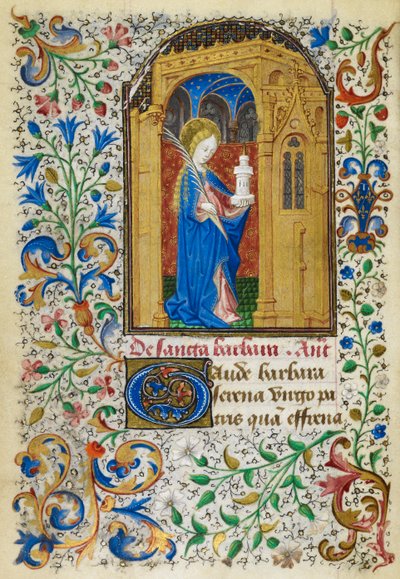 De sancta barbara. Ant
Gaude barbara
serena virgo pa
tris quā effrena